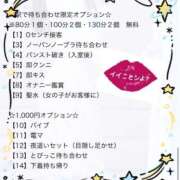 駅で待ち合わせ限定オプション☆
※80分1個・100分2個・130分2個 無料
【1】0センチ接客
【2】
【3】ノーパンノーブラ待ち合わせ
【4】パンスト破き（入室後）
【5】即クンニ
【7】即キス
【8】オナニー鑑賞
【9】聖水（女の子がお客様に）
イイニセンよ?
☆1,000円オプション☆
【10】バイブ
【11】電マ
【12】夜這いセット（目隠し足かせ）
【13】とびっこ待ち合わせ
【14】下着持ち帰り